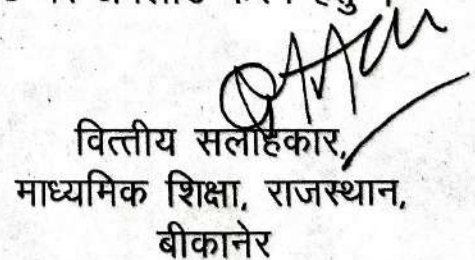 करने हेतु ।
वित्तीय सलाहकार,
माध्यमिक शिक्षा, राजस्थान,
बीकानेर